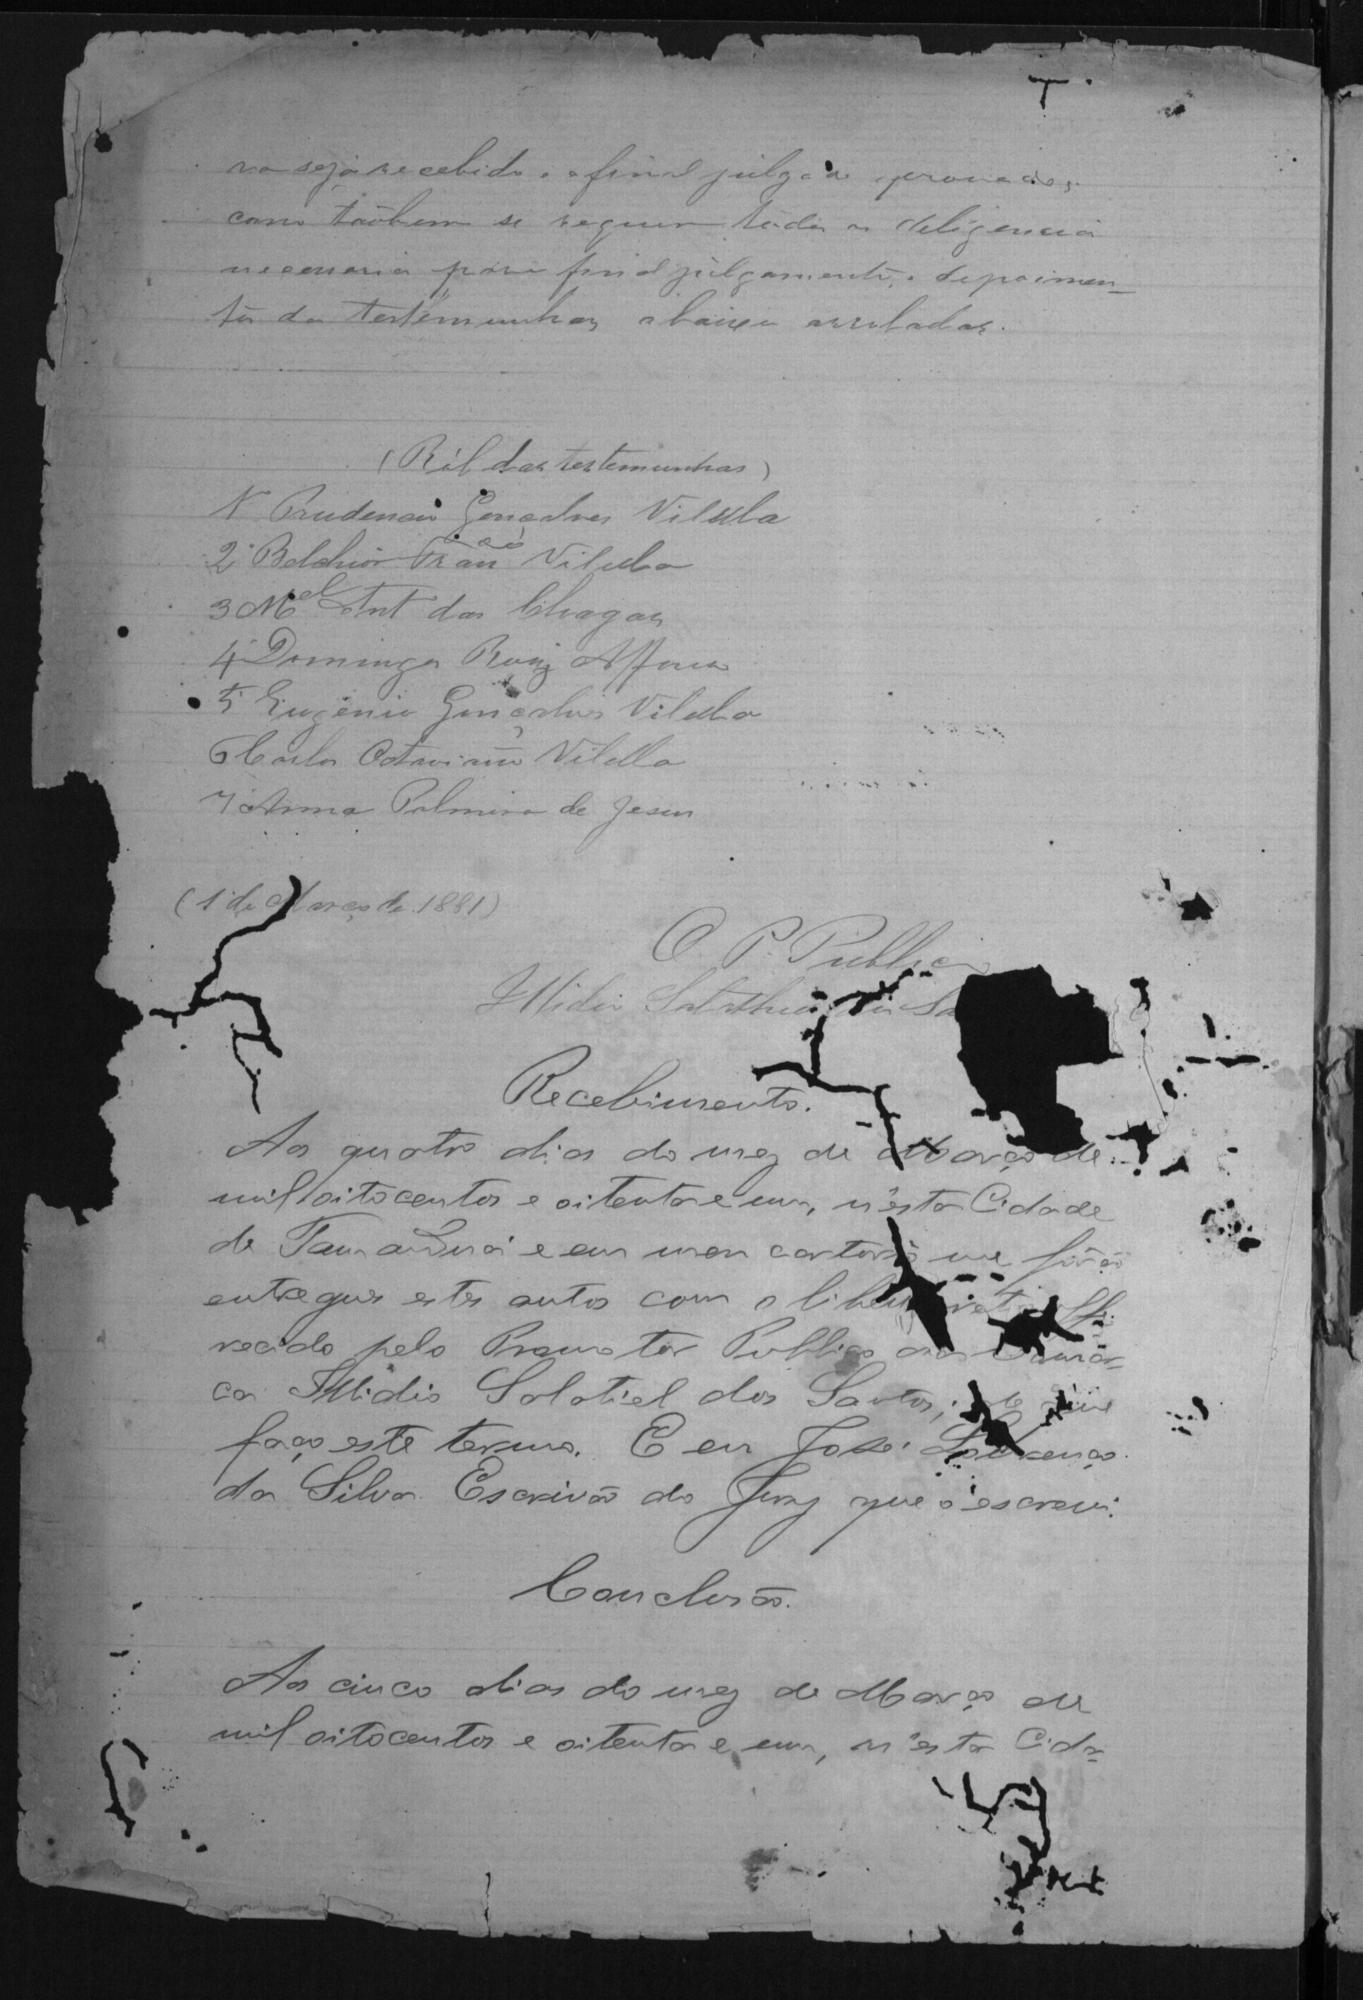 va seja recebido e afinal julgado provado,
como taobem se requer todas as deligencia
necessaria para final julgamento, e depoimen_
to da testemunhas abaixo arroladas.
(Ról das testemunhas)
1ª Prudencio Gonçalves Vilella
2ª Belchior Vilella
3 Mel Ant das Chagas
4 Domingos Roiz Affonso
5ª Eugenio Gonçalves Vilella
6 Carlos Octaviano Vilella
7 Anna Palmira de Jesus
(1 de Março de 1881)
O P. Publico
Illidio Salathiel dos Sa
Recebimento.
Aos quatro dias do mez de Março de
mil oitocentos e oitenta e um, n'esta Cidade
de Tamanduá e em meu cartorio me forão
entregues estes autos com o libello
recido pelo Promotor Publico da Comar=
ca Illidio Salatiel dos Santos; de que
faço este termo. E eu José Lourenço
da Silva Escrivão do Jury que o escrevi.
Conclusão.
Aos cinco dias do mez de Março de
mil oitocentos e oitenta e um, n'esta Cida=